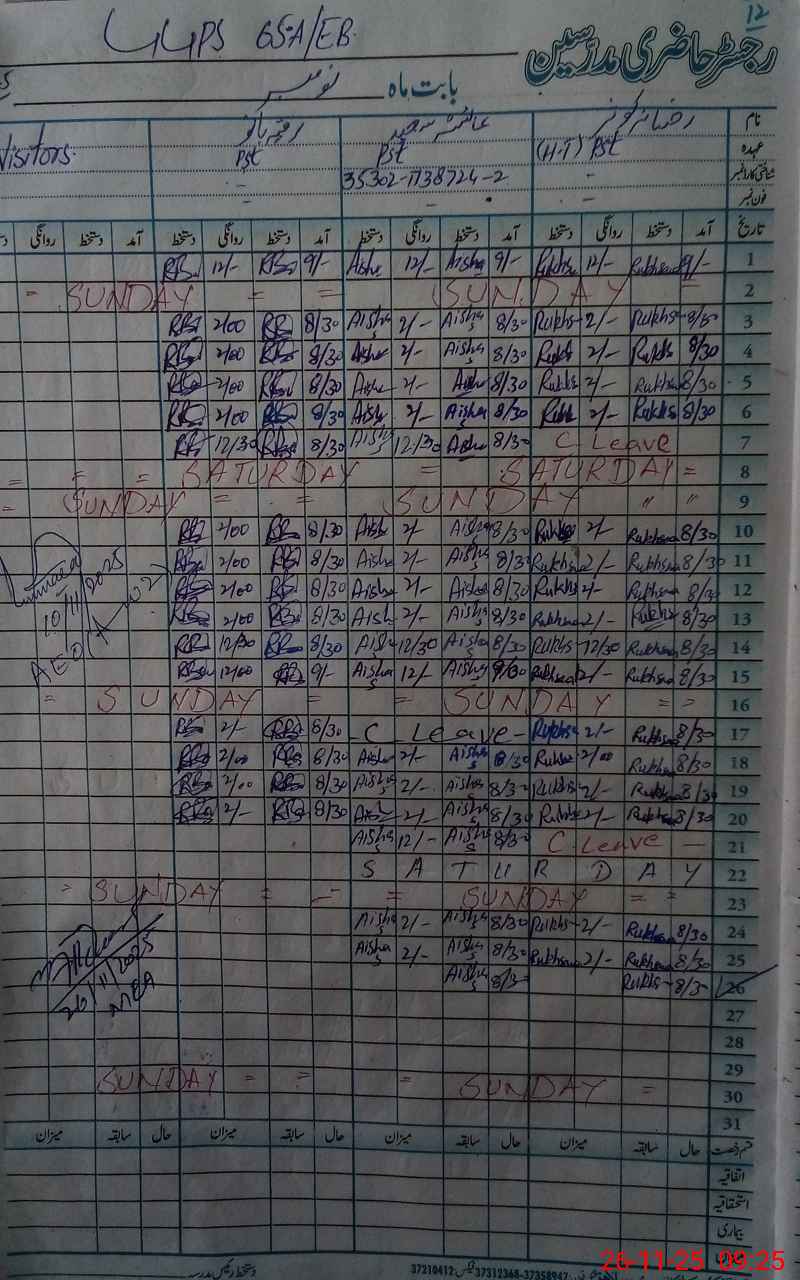 12
GGPS 65-A/EB.
رجسٹر حاضری مدرسین
بابت ماہ نومبر
نام رخسانہ کوثر عائشہ سعید رقیہ بانو
عہدہ (H.T) Pst Pst Pst Visitors.
شناختی کارڈ نمبر - 35302-1738724-2 -
فون نمبر - - -
تاریخ آمد دستخط روانگی دستخط آمد دستخط روانگی دستخط آمد دستخط روانگی دستخط آمد دستخط روانگی
1 9/- Rukhsana 12/- Rukhs 9/- Aisha 12/- Aisha 9/- 12/-
2 = SUNDAY = = SUNDAY =
3 8/30 Rukhs 2/- Rukhs 8/30 Aisha 2/- Aisha 8/30 2/00
4 8/30 Rukhs 2/- Rukhs 8/30 Aisha 2/- Aisha 8/30 2/00
5 8/30 Rukhs 2/- Rukhs 8/30 Aisha 2/- Aisha 8/30 2/00
6 8/30 Rukhs 2/- Rukh 8/30 Aisha 2/- Aisha 8/30 2/00
7 C.Leave 8/30 Aisha 12/30 Aisha 8/30 12/30
8 = = = SATURDAY = SATURDAY =
9 = SUNDAY = = SUNDAY " "
10 8/30 Rukhsana 2/- Rukhs 8/30 Aisha 2/- Aisha 8/30 2/00
11 8/30 Rukhsana 2/- Rukhsana 8/30 Aisha 2/- Aisha 8/30 2/00
12 8/30 Rukhsana 2/- Rukhsana 8/30 Aisha 2/- Aisha 8/30 2/00
13 8/30 Rukhs 2/- Rukhsana 8/30 Aisha 2/- Aisha 8/30 2/00
14 8/30 Rukhsana 12/30 Rukhs 8/30 Aisha 12/30 Aisha 8/30 12/30
15 8/30 Rukhsana 2/- Rukhsana 9/30 Aisha 12/- Aisha 9/- 12/00
10/11/2025
AEO
16 = SUNDAY = = SUNDAY = =
17 8/30 Rukhsana 2/- Rukhsa - C Leave - 8/30 2/-
18 8/30 Rukhsana 2/00 Rukhs 8/30 Aisha 2/- Aisha 8/30 2/00
19 8/30 Rukhsana 2/- Rukhs 8/30 Aisha 2/- Aisha 8/30 2/00
20 8/30 Rukhsana 2/- Rukhs 8/30 Aisha 2/- Aisha 8/30 2/-
21 C.Leave - 8/30 Aisha 12/- Aisha
22 SATURDAY
23 = SUNDAY = = = SUNDAY = =
24 8/30 Rukhsana 2/- Rukhs 8/30 Aisha 2/- Aisha
25 8/30 Rukhsana 2/- Rukhsana 8/30 Aisha 2/- Aisha
26 8/30 Rukhs 8/30 Aisha
26/11/2025
MEA
27
28
29
30 SUNDAY = = = SUNDAY =
31
قسم رخصت حال سابقہ میزان حال سابقہ میزان حال سابقہ میزان حال سابقہ میزان
اتفاقیہ
استحقاقیہ
بیماری
37210412 :فیکس 37312368-37358947 :فون
دستخط رئیس مدرسہ
26-11-25 09:25